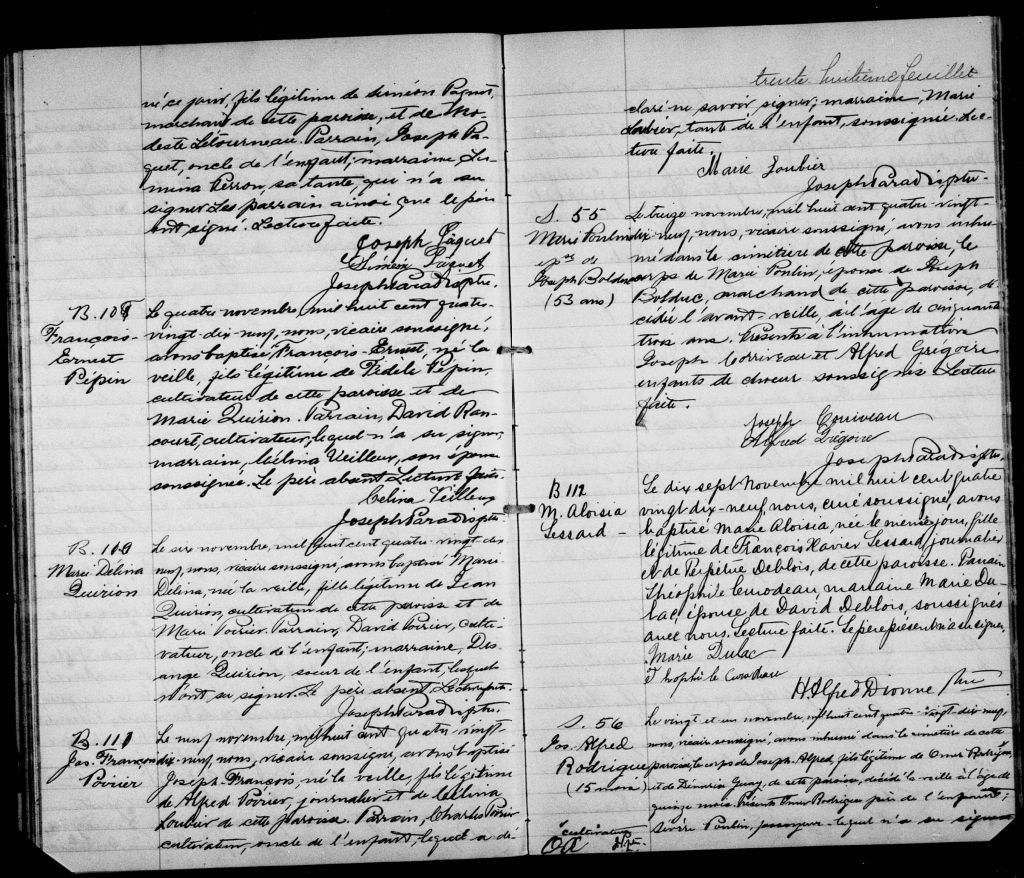 né ce jour, fils légitime de Siméon Paquet,
marchand de cette paroisse, et de Mo-
deste Létourneau. Parrain, Joseph Pa-
quet, oncle de l'enfant; marraine,
Perron, sa tante, qui n'a su
signer. Les parrain ainsi que le père
ont signé. Lecture faite.
Joseph Paquet
Siméon Paquet
Joseph Paradis ptre.
B. 109
François-
Ernest
Pépin
Le quatre novembre, mil huit cent quatre-
vingt-dix-neuf, nous, vicaire soussigné,
avons baptisé François-Ernest, né la
veille, fils légitime de Fidèle Pépin,
cultivateur de cette paroisse et de
Marie Quirion. Parrain, David Ran-
court, cultivateur, lequel n'a su signer,
marraine, Célina Veilleux, son épouse
soussignée. Le père absent. Lecture faite.
Celina Veilleux
Joseph Paradis ptre.
B. 110
Marie Delina
Quirion
Le six novembre, mil huit cent quatre-vingt dix
neuf, nous, vicaire soussigné, avons baptisé Marie
Delina, née la veille, fille légitime de Jean
Quirion, cultivateur de cette paroisse et de
Marie Poirier. Parrain, David Poirier, culti-
vateur, oncle de l'enfant; marraine, Des
ange Quirion, soeur de l'enfant, lesquels
n'ont su signer. Le père absent. Lecture faite.
Joseph Paradis ptre.
B. 111
Jos. François
Poirier
Le neuf novembre, mil huit cent quatre-vingt-
dix-neuf, nous, vicaire soussigné, avons baptisé
Joseph-François, né la veille, fils légitime
de Alfred Poirier, journalier et de Célina
Loubier de cette paroisse. Parrain, Charles Poirier
cultivateur, oncle de l'enfant, lequel a dé
trente huitième feuillet
claré ne savoir signer; marraine, Marie
Loubier, tante de l'enfant, soussignée. Lec-
ture faite.
Marie Loubier
Joseph Paradis ptre.
S. 55
Marie Poulin
épse de
Joseph Bolduc
(53 ans)
Le treize novembre, mil huit cent quatre-vingt-
dix-neuf, nous, vicaire soussigné, avons inhu-
mé dans le cimetière de cette paroisse, le
corps de Marie Poulin, épouse de Joseph
Bolduc, marchand de cette paroisse, dé-
cédée l'avant-veille, à l'âge de cinquante
trois ans. Présents à l'inhumation
Joseph Corriveau et Alfred Grégoire
enfants de choeur soussignés. Lecture
faite.
Joseph Corriveau
Alfred Grégoire
Joseph Paradis ptre.
B 112
M. Aloisia
Lessard -
Le dix sept Novembre mil huit cent quatre
vingt dix-neuf, nous, curé soussigné, avons
baptisé Marie Aloisia, née le même jour, fille
légitime de François Xavier Lessard, journalier
et de Perpétue Deblois, de cette paroisse. Parrain
Théophile Curodeau, marraine Marie Du
lac, épouse de David Deblois, soussignés
avec nous. Lecture faite. Le père présent n'a su signer.
Marie Dulac
Théophile
H Alfred Dionne Ptre
S. 56
Jos. Alfred
Rodrigue
(15 mois)
Le vingt et un novembre, mil huit cent quatre-vingt-dix-neuf,
nous, vicaire soussigné, avons inhumé dans le cimetière de cette
paroisse, le corps de Joseph-Alfred, fils légitime de Omer Rodrigue,
et de Démérise Quay, de cette paroisse, décédé la veille à l'âge de
quinze mois. Présents Omer Rodrigue père de l'enfant et
Poulin, lequel n'a su signer
cultivateur